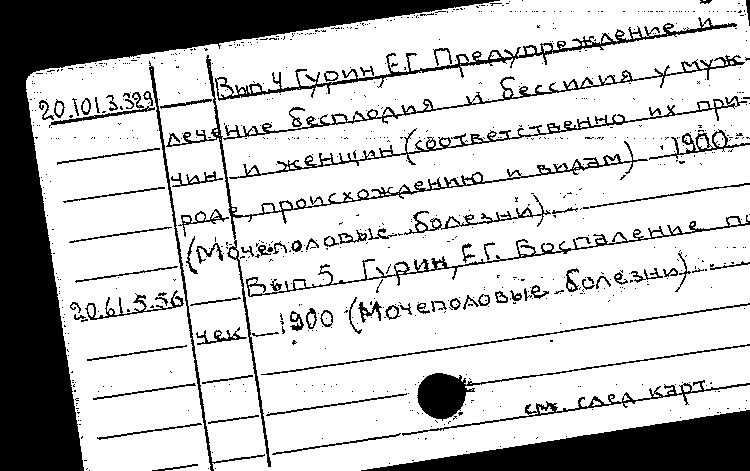 Вып.4 Гурин, Е.Г. Предупреждение и
20.101.3.329
лечение бесплодия и бессилия у муж-
чин и женщин (соответственно их при-
роде, происхождению и видам) 1900
(Мочеполовые болезни).
Вып.5. Гурин, Е.Г. Воспаление по
20.61.5.56
чек 1900 (Мочеполовые болезни)
см. след карт.